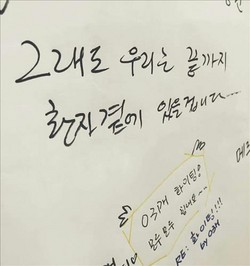 그래도 우리는 끝까지
환자곁에 있을겁니다...
03개 화이팅!
모두모두 힘내요~~
RE: 화이팅!!!